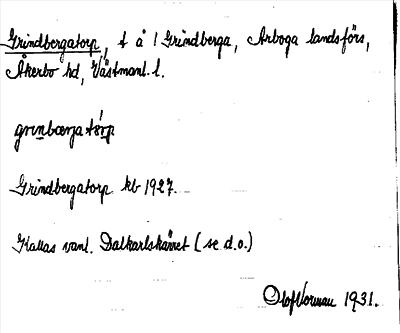 Grindbergatorp, t å 1 Grindberga, Arboga landsförs,
Åkerbo hd, Västmanl. l.
grinbærja tórp
Grindbergatorp kb 1927.
Kallas vanl. Dalkarlskärret (se d.o.)
Olof Norman 1931.